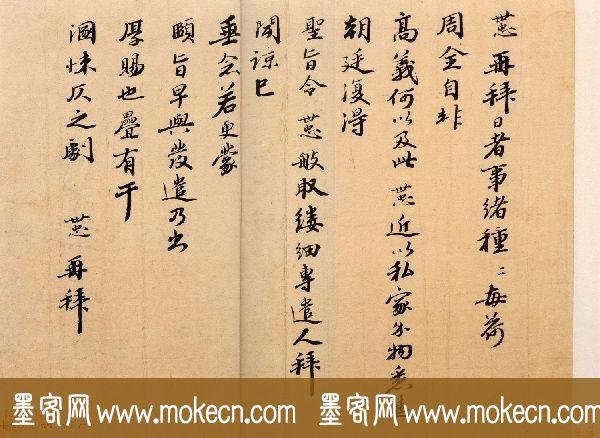 世忠 再拜日者事緒種〻每荷
周全自非
高義何以及此 世忠 近以私家分物悉
朝廷復得
聖旨令 世忠 般取縷細專遣人拜
聞諒已
垂念若更蒙
頤旨早與發遣乃出
厚賜也疊有干
溷悚仄之劇 世忠 再拜
墨客网www.mokecn.com 墨客网www.mokecn.com